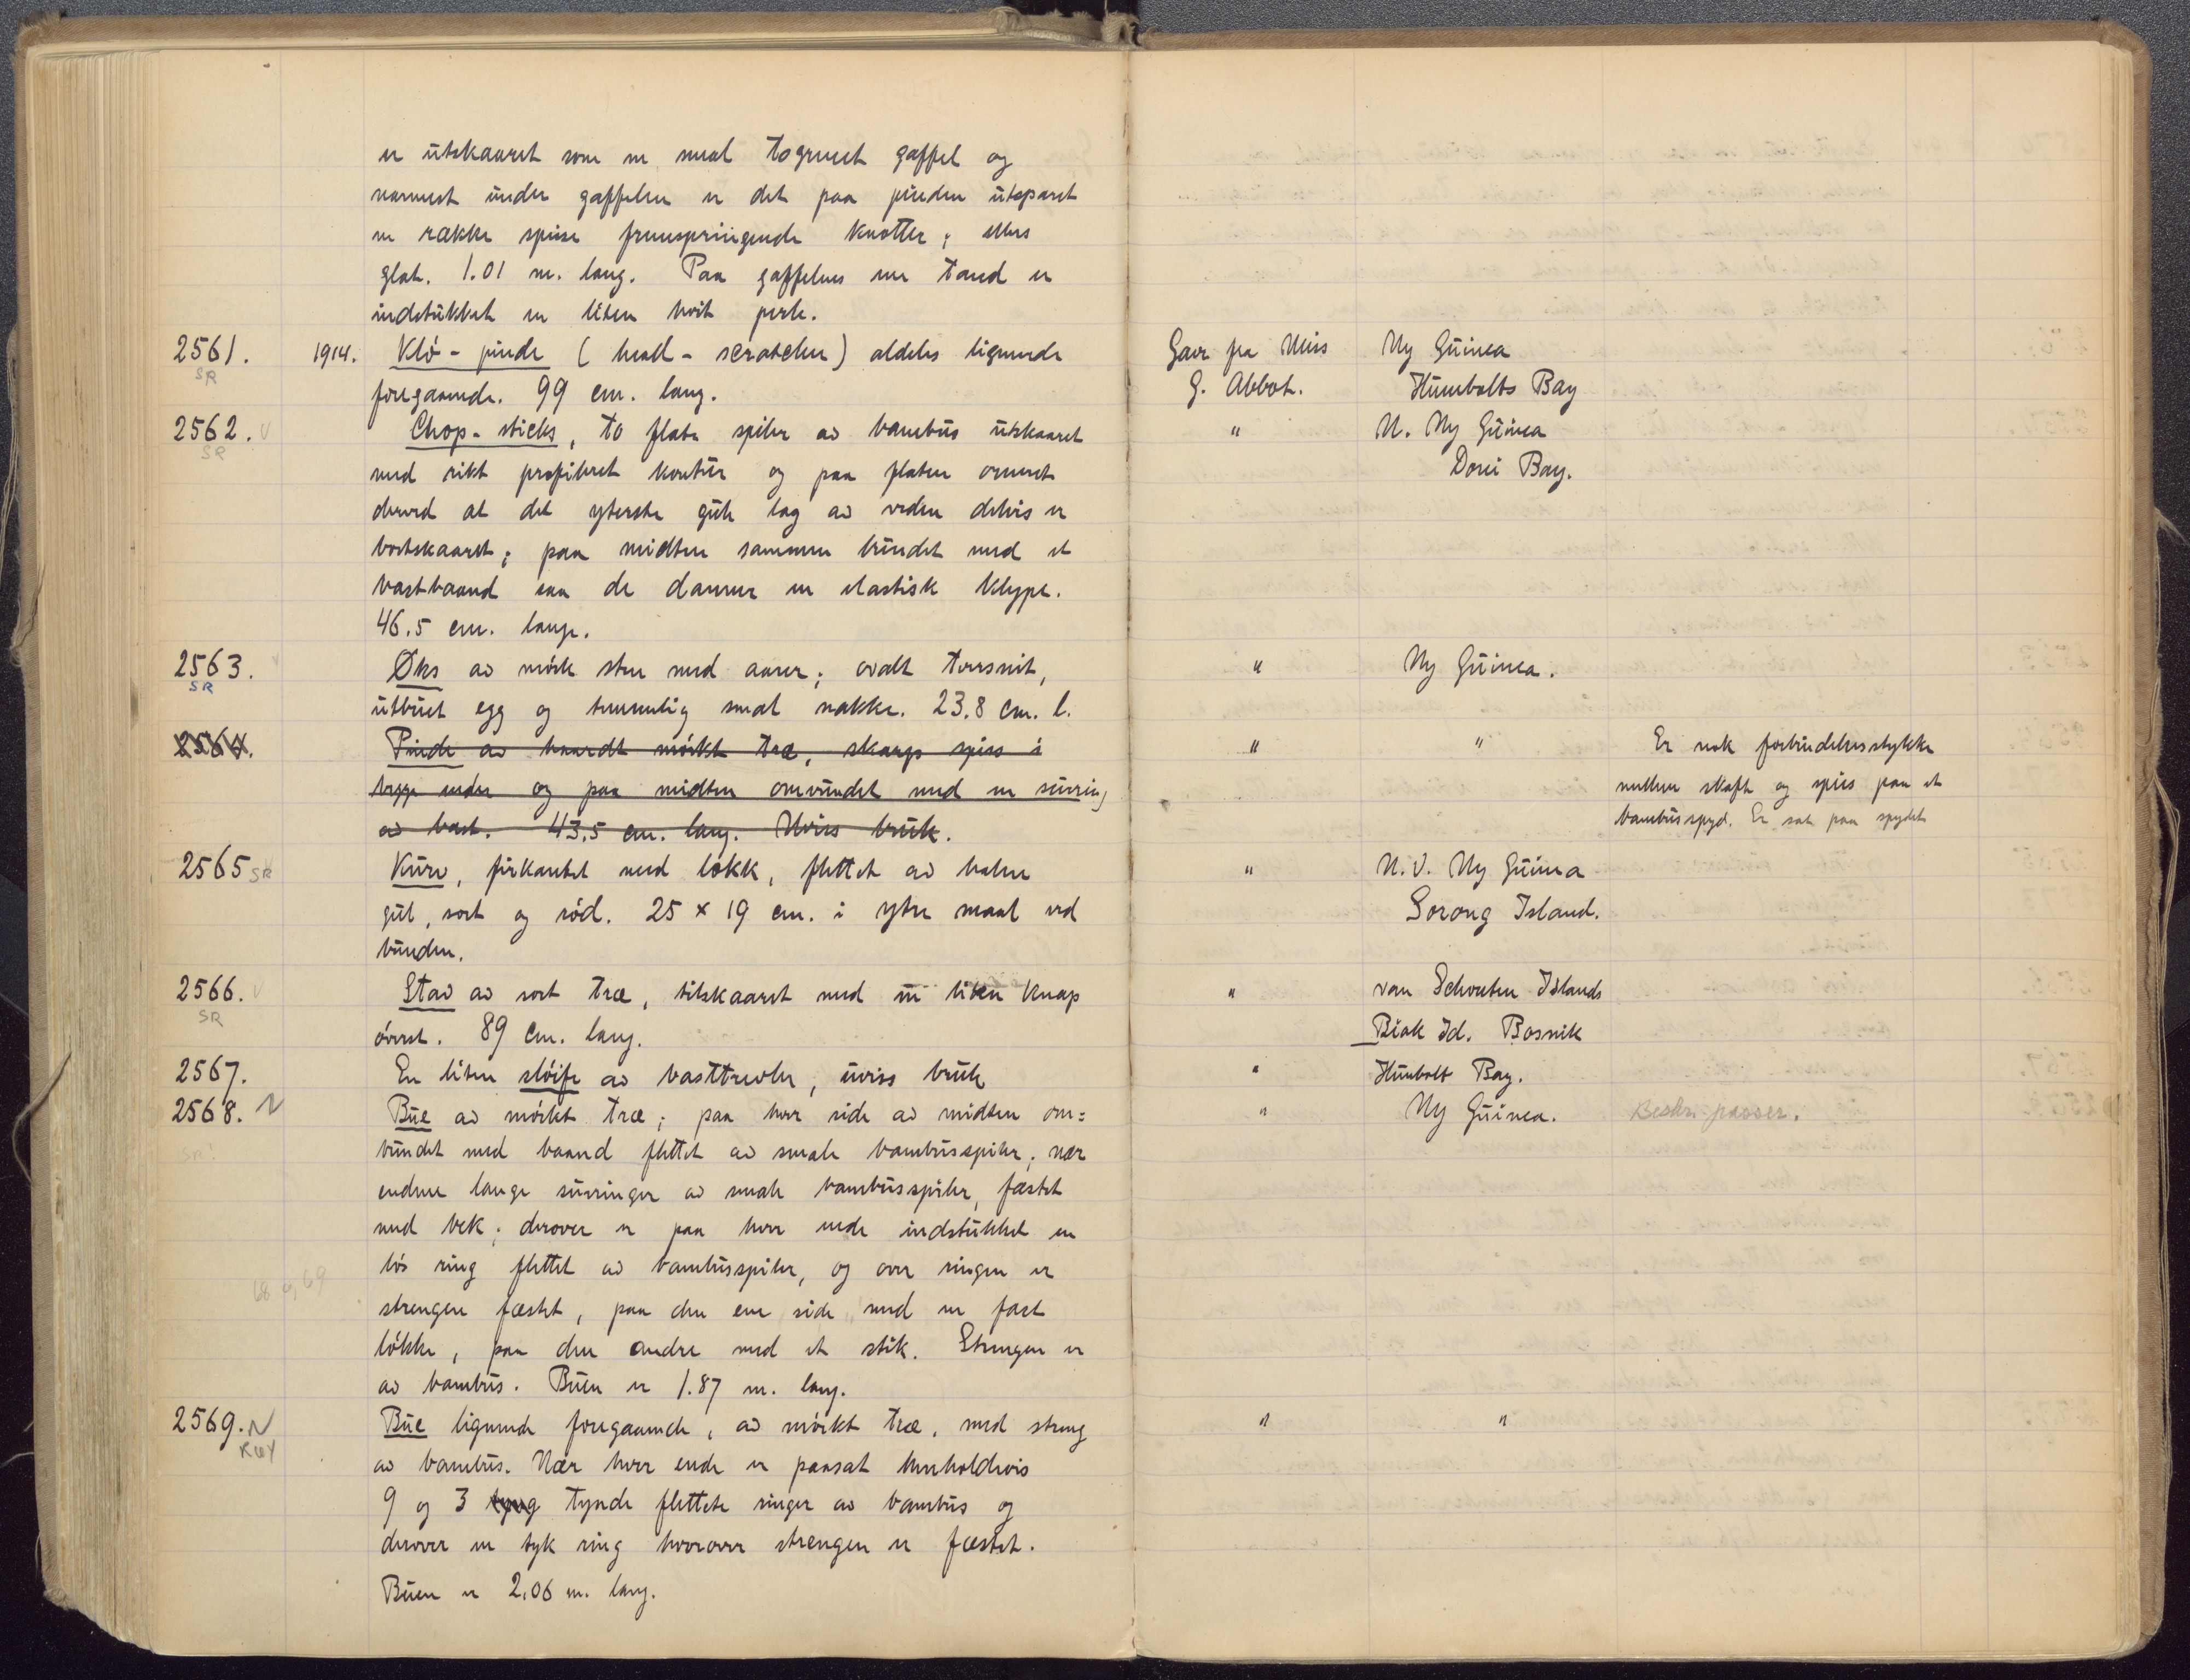 er utskaaret som en smal togrenet gaffel og
nærmest under gaffelen er det paa pinden utsparet
en række spisse fremspringende knotter; ellers
glat. 1.01 m. lang. Paa gaffelens ene tand er
indstukket en liten hvit perle.
2561. 1914. Klö-pinde (head-scratcher) aldeles lignende Gave fra Miss Ny Guinea
SR
foregaaende. 99 cm. lang. G. Abbot. Humbolts Bay
2562. v Chop-sticks, to flate spiler av bambus utskaaret " N. Ny Guinea
SR
med rikt profileret kontur og paa flaten ornert Dorei Bay.
derved at det yterste gule lag av veden delvis er
bortskaaret; paa midten sammenbundet med et
bastbaand saa de danner en elastisk klype.
46.5 cm. lange.
2563. Øks av mörk sten med aarer; ovalt tversnit, " Ny Guinea.
SR
utbuet egg og temmelig smal nakke. 23.8 cm. l.
2564. Pinde av haardt mörkt træ, skarp spiss i " " Er nok forbindelsesstykke
begge ender og paa midten omvundet med en surring mellem skaft og spiss paa et
av bast. 43.5 cm. lang. Uviss bruk. bambusspyd. Er sat paa spydet
2565 SR Kurv, firkantet med lokk, flettet av halm " N.V. Ny Guinea
gul, sort og röd. 25 x 19 cm. i ytre maal ved Sorong Island.
bunden.
2566. v Stav av sort træ, tilskaaret med en liten knap " van Schouten Islands
SR
överst. 89 cm. lang. Biak Id. Bosnik
2567. En liten slöife av basttrevler, uviss bruk " Humbolt Bay.
2568. N Bue av mörkt træ; paa hver side av midten om= " Ny Guinea. Beskr. passer.
SR
bundet med baand flettet av smale bambusspiler; nær
endene lange surringer av smale bambusspiler, fæstet
med bek; derover er paa hver ende indstukket en
lös ring flettet av bambusspiler, og over ringen er
strengen fæstet, paa den ene side med en fast
lökke, paa den andre med et stik. Strengen er
av bambus. Buen er 1.87 m. lang.
2569. N Bue lignende foregaaende, av mörkt træ, med streng " "
av bambus. Nær hver ende er paasat henholdsvis
9 og 3 tynde flettete ringer av bambus og
derover en tyk ring hvorover strengen er fæstet.
Buen er 2.06 m. lang.